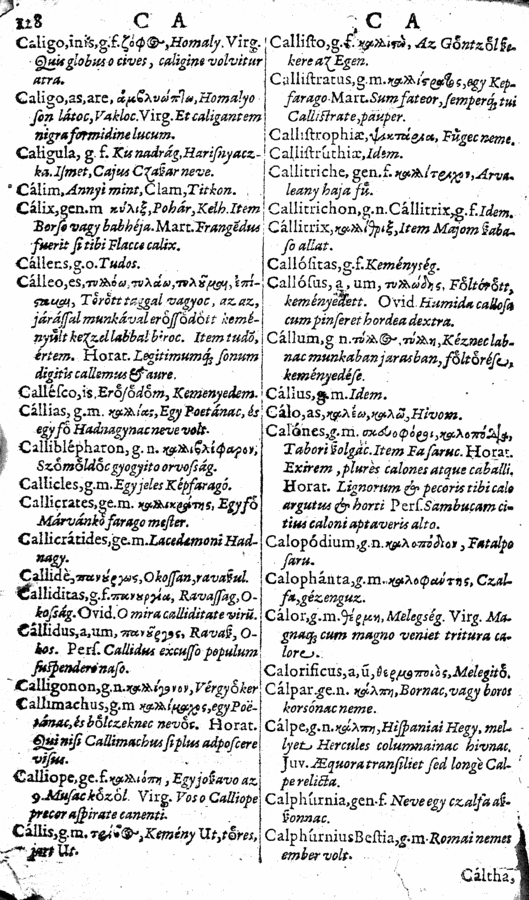 128 C A C A
Caligo,inis,g.f. ζόφ , Homaly. Virg.
Quis globus o cives, caligine volvitur
atra.
Caligo,as,are, ἀμβλυώττω, Homalyo
son látoc, Vakloc. Virg. Et caligantem
nigra formidine lucum.
Caligula, g. f. Ku nadrág, Harisnyacz-
ka. Ismet, Cajus Czaẞar neve.
Cálim, Annyi mint, Clam, Titkon.
Cálix,gen.m κύλιξ, Pohár, Kelh. Item
Borso vagy babhéja. Mart. Frangẽdus
fuerit si tibi Flacce calix.
Cállens,g.o. Tudos.
Cálleo,es,
Tőrőtt taggal vagyoc, az az,
járással munkával erőssődőtt kemé-
nyült kezzel labbal biroc. Item tudő,
értem. Horat. Legitimumq; sonum
digitis callemus & aure.
Callésco,is, Erőssődőm, Kemenyedem.
Cállias, g.m. καλλίας, Egy Poetánac, és
egy fő Hadnagynac neve volt.
Calliblépharon, g. n. καλλιβλέφαρον,
Szőmőldőc gyogyito orvosság.
Callicles,g.m. Egy jeles Képfaragó.
Callicrates,ge.m. καλλικράτης, Egy fő
Márvánkő farago mester.
Callicrátides,ge.m. Lacedemoni Had-
nagy.
Callidè, πανούργως, Okossan, ravaẞul.
Calliditas,g.f. πανουργία, Ravasság, O-
kosság. Ovid. O mira calliditate virũ.
Cállidus,a,um, πανοῦργος, Ravaẞ, O-
kos. Pers. Callidus excusso populum
suspendere naso.
Calligonon,g.n. καλλίγονον, Vérgyőker
Callimachus,g.m καλλίμαχος, egy Poë-
tánac, és bőlczeknec nevőc. Horat.
Qui nisi Callimachus si plus adposcere
visus.
Calliope,ge.f. καλλιόπη, Egy joẞavo az
9. Musac kőzől. Virg. Vos o Calliope
precor aspirate canenti.
Cállis,g.m. Kemény Ut, tőres,
jart Ut.
Callisto,g.f. καλλιστώ, Az Gőntzőlẞe-
kere az Egen.
Callistratus,g.m. καλλίστρατος, egy Kep-
farago. Mart. Sum fateor, semperq; fui
Callistrate, pauper.
Callistrophiæ, Fűgec neme.
Callistrúthiæ, Idem.
Callitriche, gen.f. καλλίτριχον, Arva-
leany haja fű.
Callitrichon,g.n. Cállitrix,g.f. Idem.
Callitrix, καλλίθριξ, Item Majom ẞaba-
so allat.
Callósitas,g.f. Keménység.
Callósus,a,um, τυλώδης, Főltőrőtt,
keményedett. Ovid. Humida callosa
cum pinseret hordea dextra.
Cállum,g n. τύλη, Kéznec lab-
nac munkaban jarasban, főltőrése,
keményedése.
Cálius,g.m. Idem.
Cálo,as, καλέω, καλῶ, Hivom.
Calónes,g.m. σκευοφόροι,
Tabori ẞolgác. Item Fa saruc. Horat.
Exirem, plurès calones atque caballi.
Horat. Lignorum & pecoris tibi calo
argutus & horti Pers. Sambucam ci-
tius caloni aptaveris alto.
Calopódium,g.n. καλοπόδιον, Fatalpo
saru.
Calophánta,g.m. καλοφαύτης, Czal-
fa, gézenguz.
Cálor,g.m. θέρμη, Melegség. Virg. Ma-
gnaq; cum magno veniet tritura ca-
lore.
Calorificus,a,ũ, θερμοποιὸς, Melegitő.
Cálpar.ge.n. κάλπη, Bornac, vagy boros
korsónac neme.
Cálpe,g.n. κάλπη, Hispaniai Hegy, mel-
lyet Hercules columnainac hivnac.
Juv. Æquora transiliet sed longè Cal-
pe relicta.
Calphúrnia,gen.f. Neve egy czalfa aẞ-
ẞonnac.
Calphúrnius Bestia,g.m. Romai nemes
ember volt.
Cáltha,